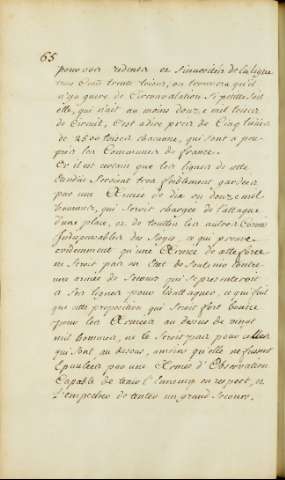 65
pour vos redentes et sinuosités de la ligne
trois cens trente toises, on trouvera qu'il
n'y a guere de Circonvalation si petite soit
elle, qui n'ait au moins douze mil toises
de Circuit, C'est a dire pres de Cinq lieües
de 2500 toises chacune, qui sont a peu
pres les Communes de france.
Or il est certain que les lignes de cette
Etendüe seroient tres foiblement gardées
par une Armée de dix ou douze mil
hommes, qui seroit chargée de l'attaque
d'une place, et de toutes les autres
Indispensables des Sieges, ce qui prouve
evidemment qu'une Armée de cette force
ne seroit pas en Etat de soutenir contre
une armée de Secours qui se presenteroit
a ses lignes pour l'attaquer, ce qui fait
que cette proposition qui seroit fort bonne
pour les Armées au dessus de vingt
mil hommes, ne le seroit pas pour celles
qui sont au dessous, amoins qu'elle ne fussent
Epaulées par une Armée d'Observation
Capable de tenir l'Ennemy en respect, et
l'empecher de tenter un grand Secours.